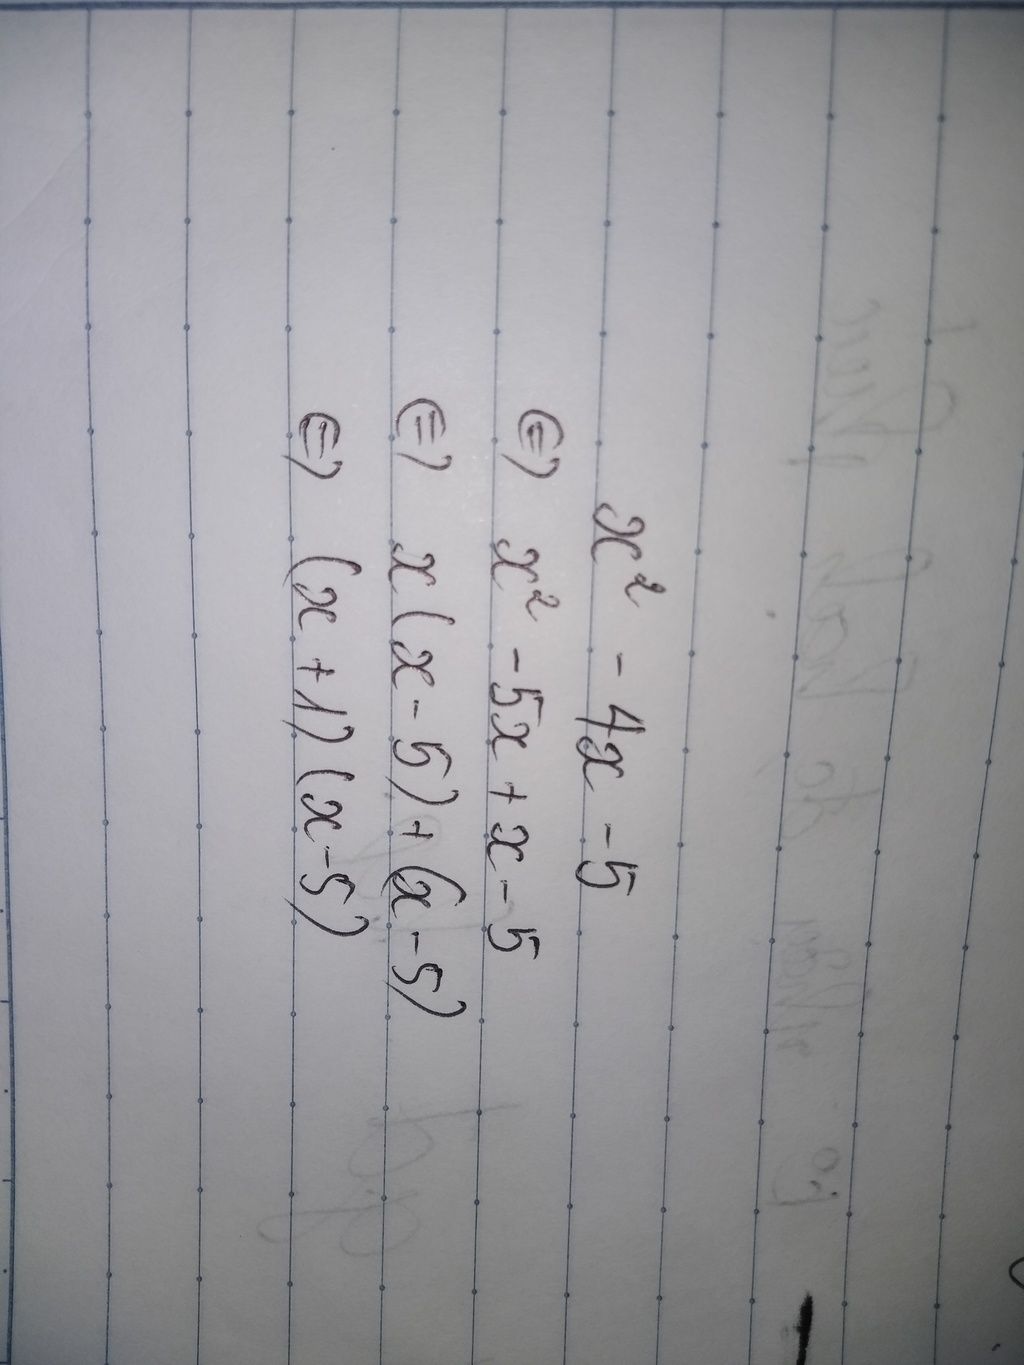 x² - 4x - 5
(=) x² - 5x + x - 5
(=) x(x - 5) + (x - 5)
(=) (x + 1)(x - 5)